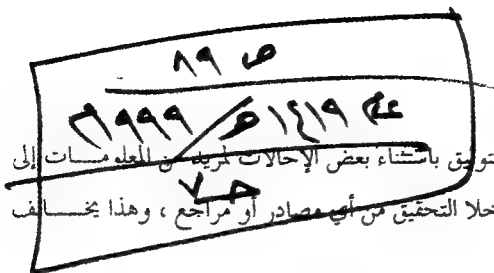 ص ٨٩
عام ١٤١٩هـ/١٩٩٩م
توثيق باستثناء بعض الإحالات لمزيد من المعلومـــات إلى
حـ٧
خلا التحقيق من أي مصادر أو مراجع ، وهذا يخـــالف